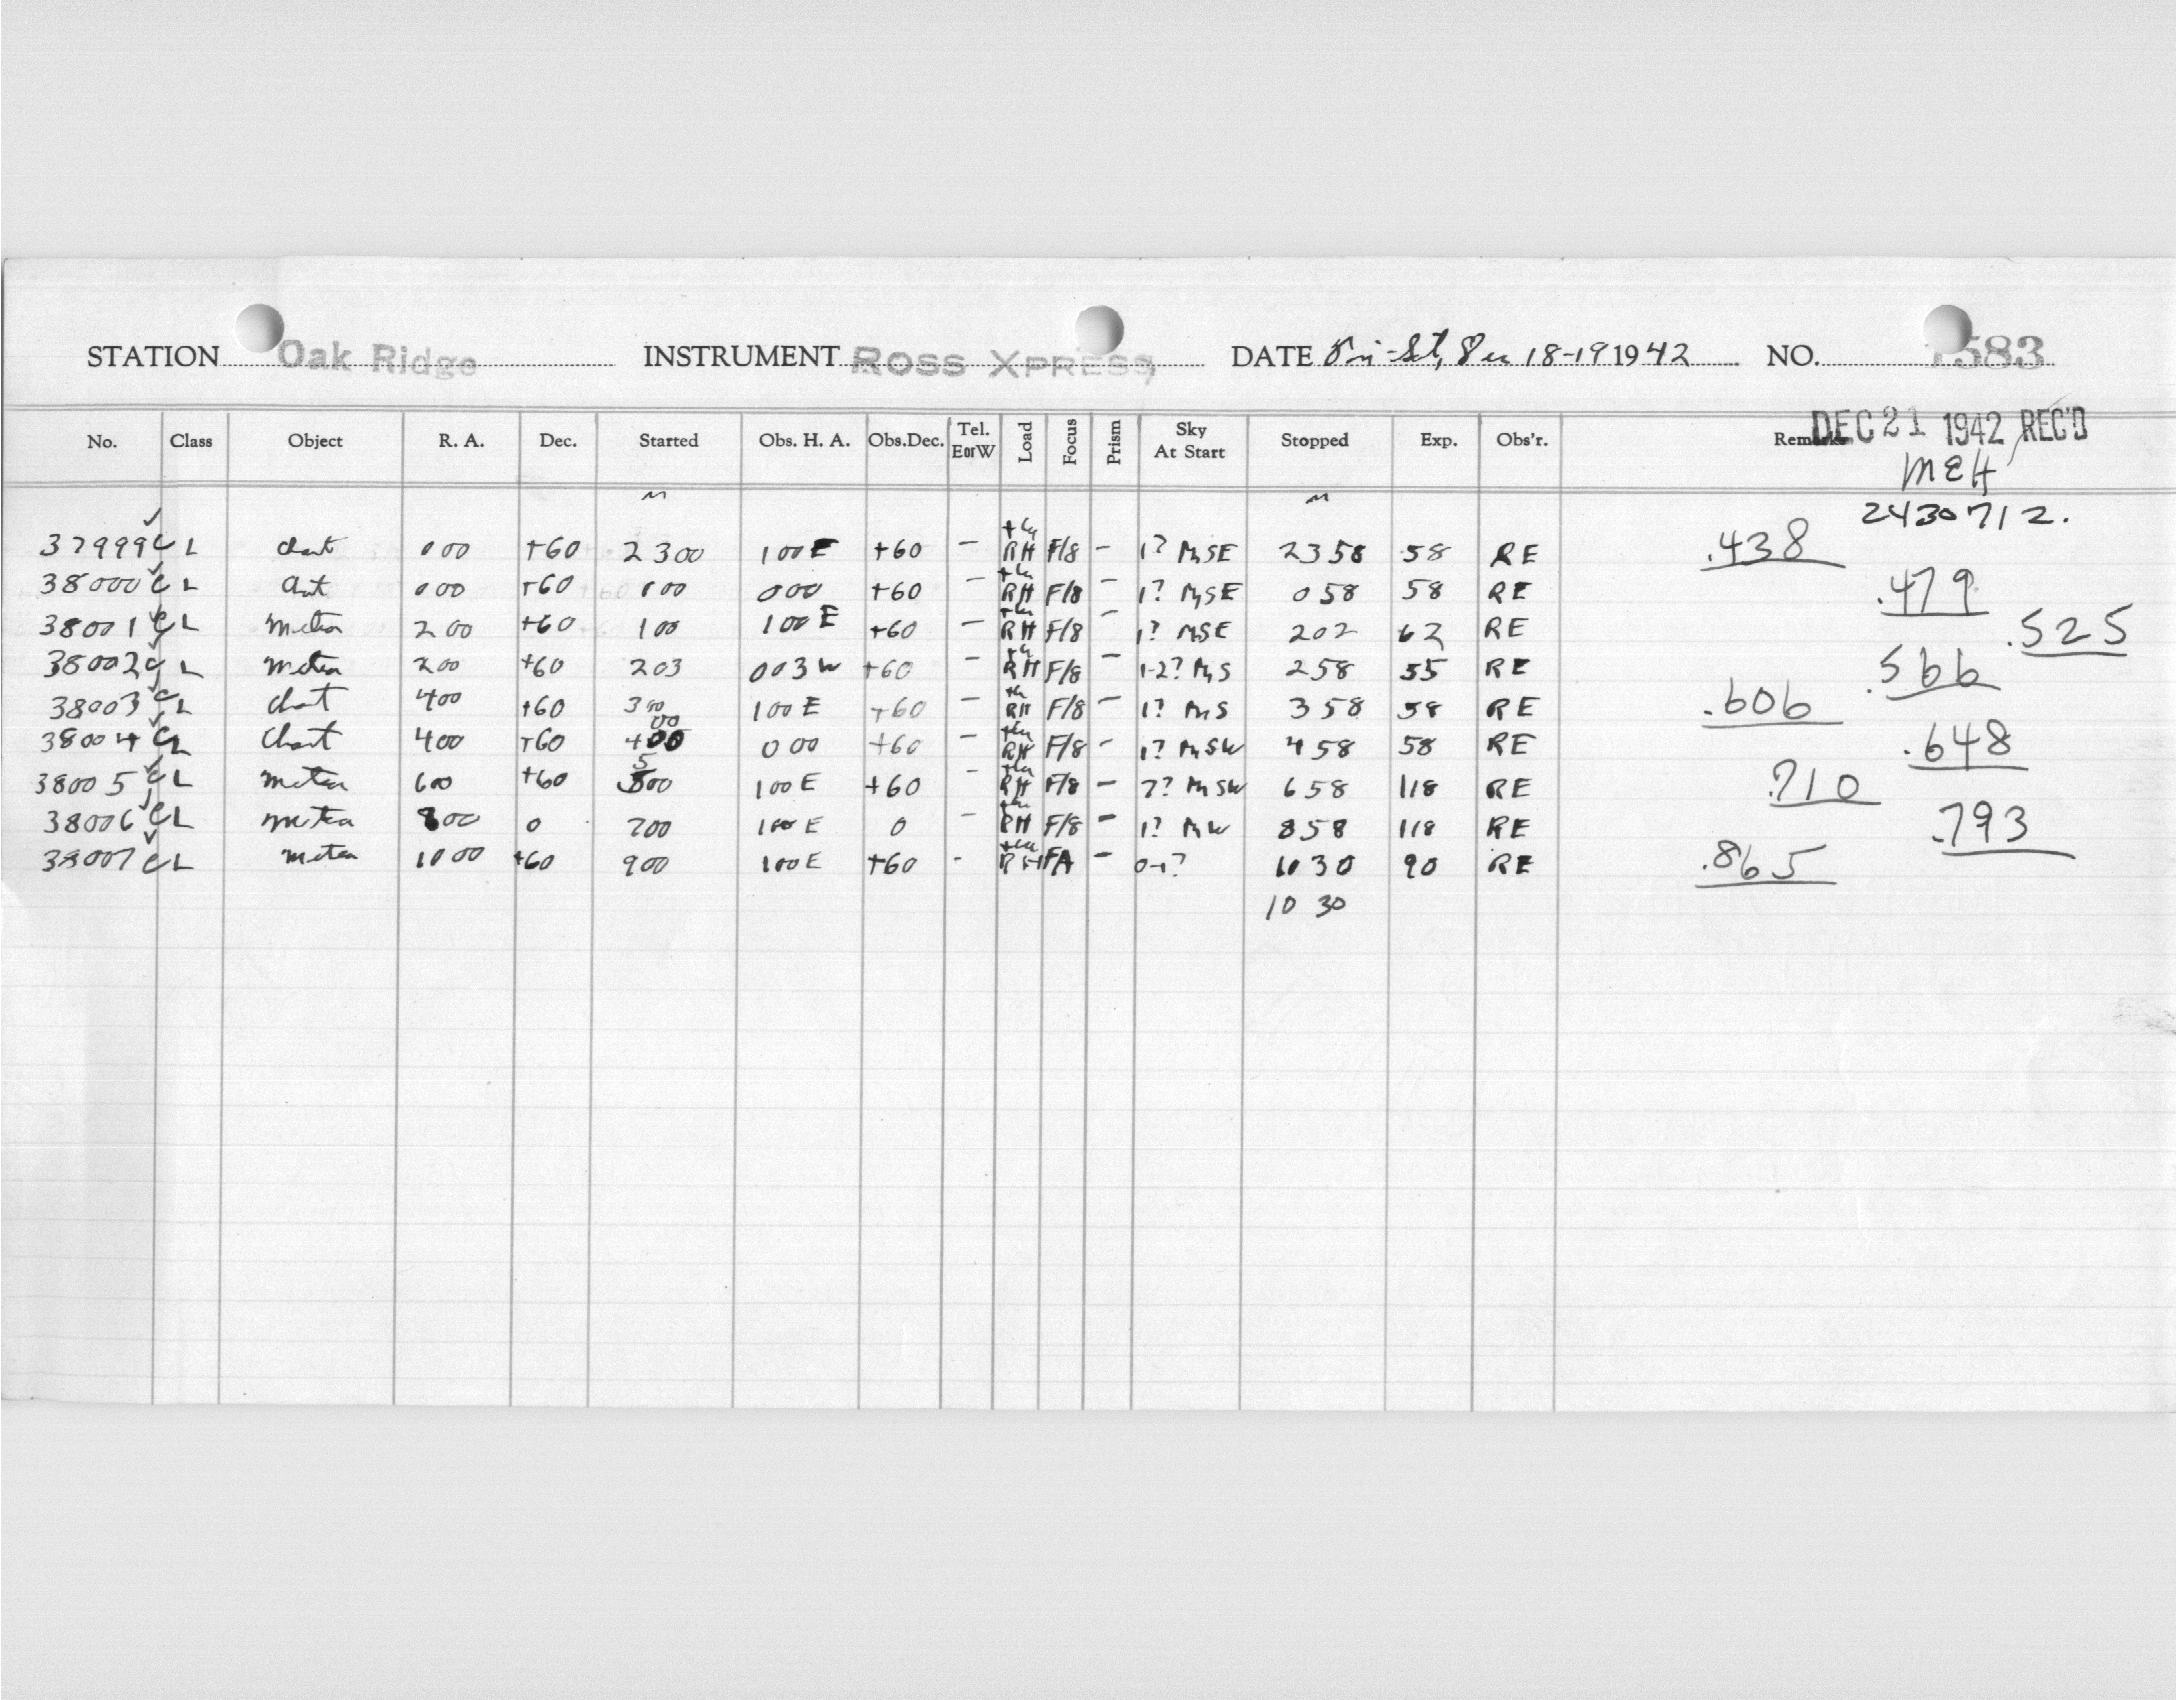 STATION Oak Ridge INSTRUMENT ROSS XPRESS DATE Fri-Sat, Dec 18-19 1942 NO. 1583
No. Class Object R. A. Dec. Started Obs. H. A. Obs.Dec. Tel. EorW Load Focus Prism Sky At Start Stopped Exp. Obs'r. Remarks
DEC 21 1942 REC'D
MEH
2430712.
37999 C L chart 0 00 +60 23 00 1 00 E +60 - RH F/8 - 1? M SE 23 58 58 RE .438
38000 C L chart 0 00 +60 0 00 0 00 +60 - RH F/8 - 1? M SE 0 58 58 RE .479
38001 C L meteor 2 00 +60 1 00 1 00 E +60 - RH F/8 - 1? M SE 2 02 62 RE .525
38002 C L meteor 2 00 +60 2 03 0 03 W +60 - RH F/8 - 1-2? M S 2 58 55 RE .566
38003 C L chart 4 00 +60 3 00 1 00 E +60 - RH F/8 - 1? M S 3 58 58 RE .606
38004 C L chart 4 00 +60 4 00 0 00 +60 - RH F/8 - 1? M SW 4 58 58 RE .648
38005 C L meteor 6 00 +60 5 00 1 00 E +60 - RH F/8 - ? M SW 6 58 118 RE .710
38006 C L meteor 8 00 0 7 00 1 00 E 0 - RH F/8 - 1? M W 8 58 118 RE .793
38007 C L meteor 10 00 +60 9 00 1 00 E +60 - RH - 0-1? 10 30 90 RE .865
10 30